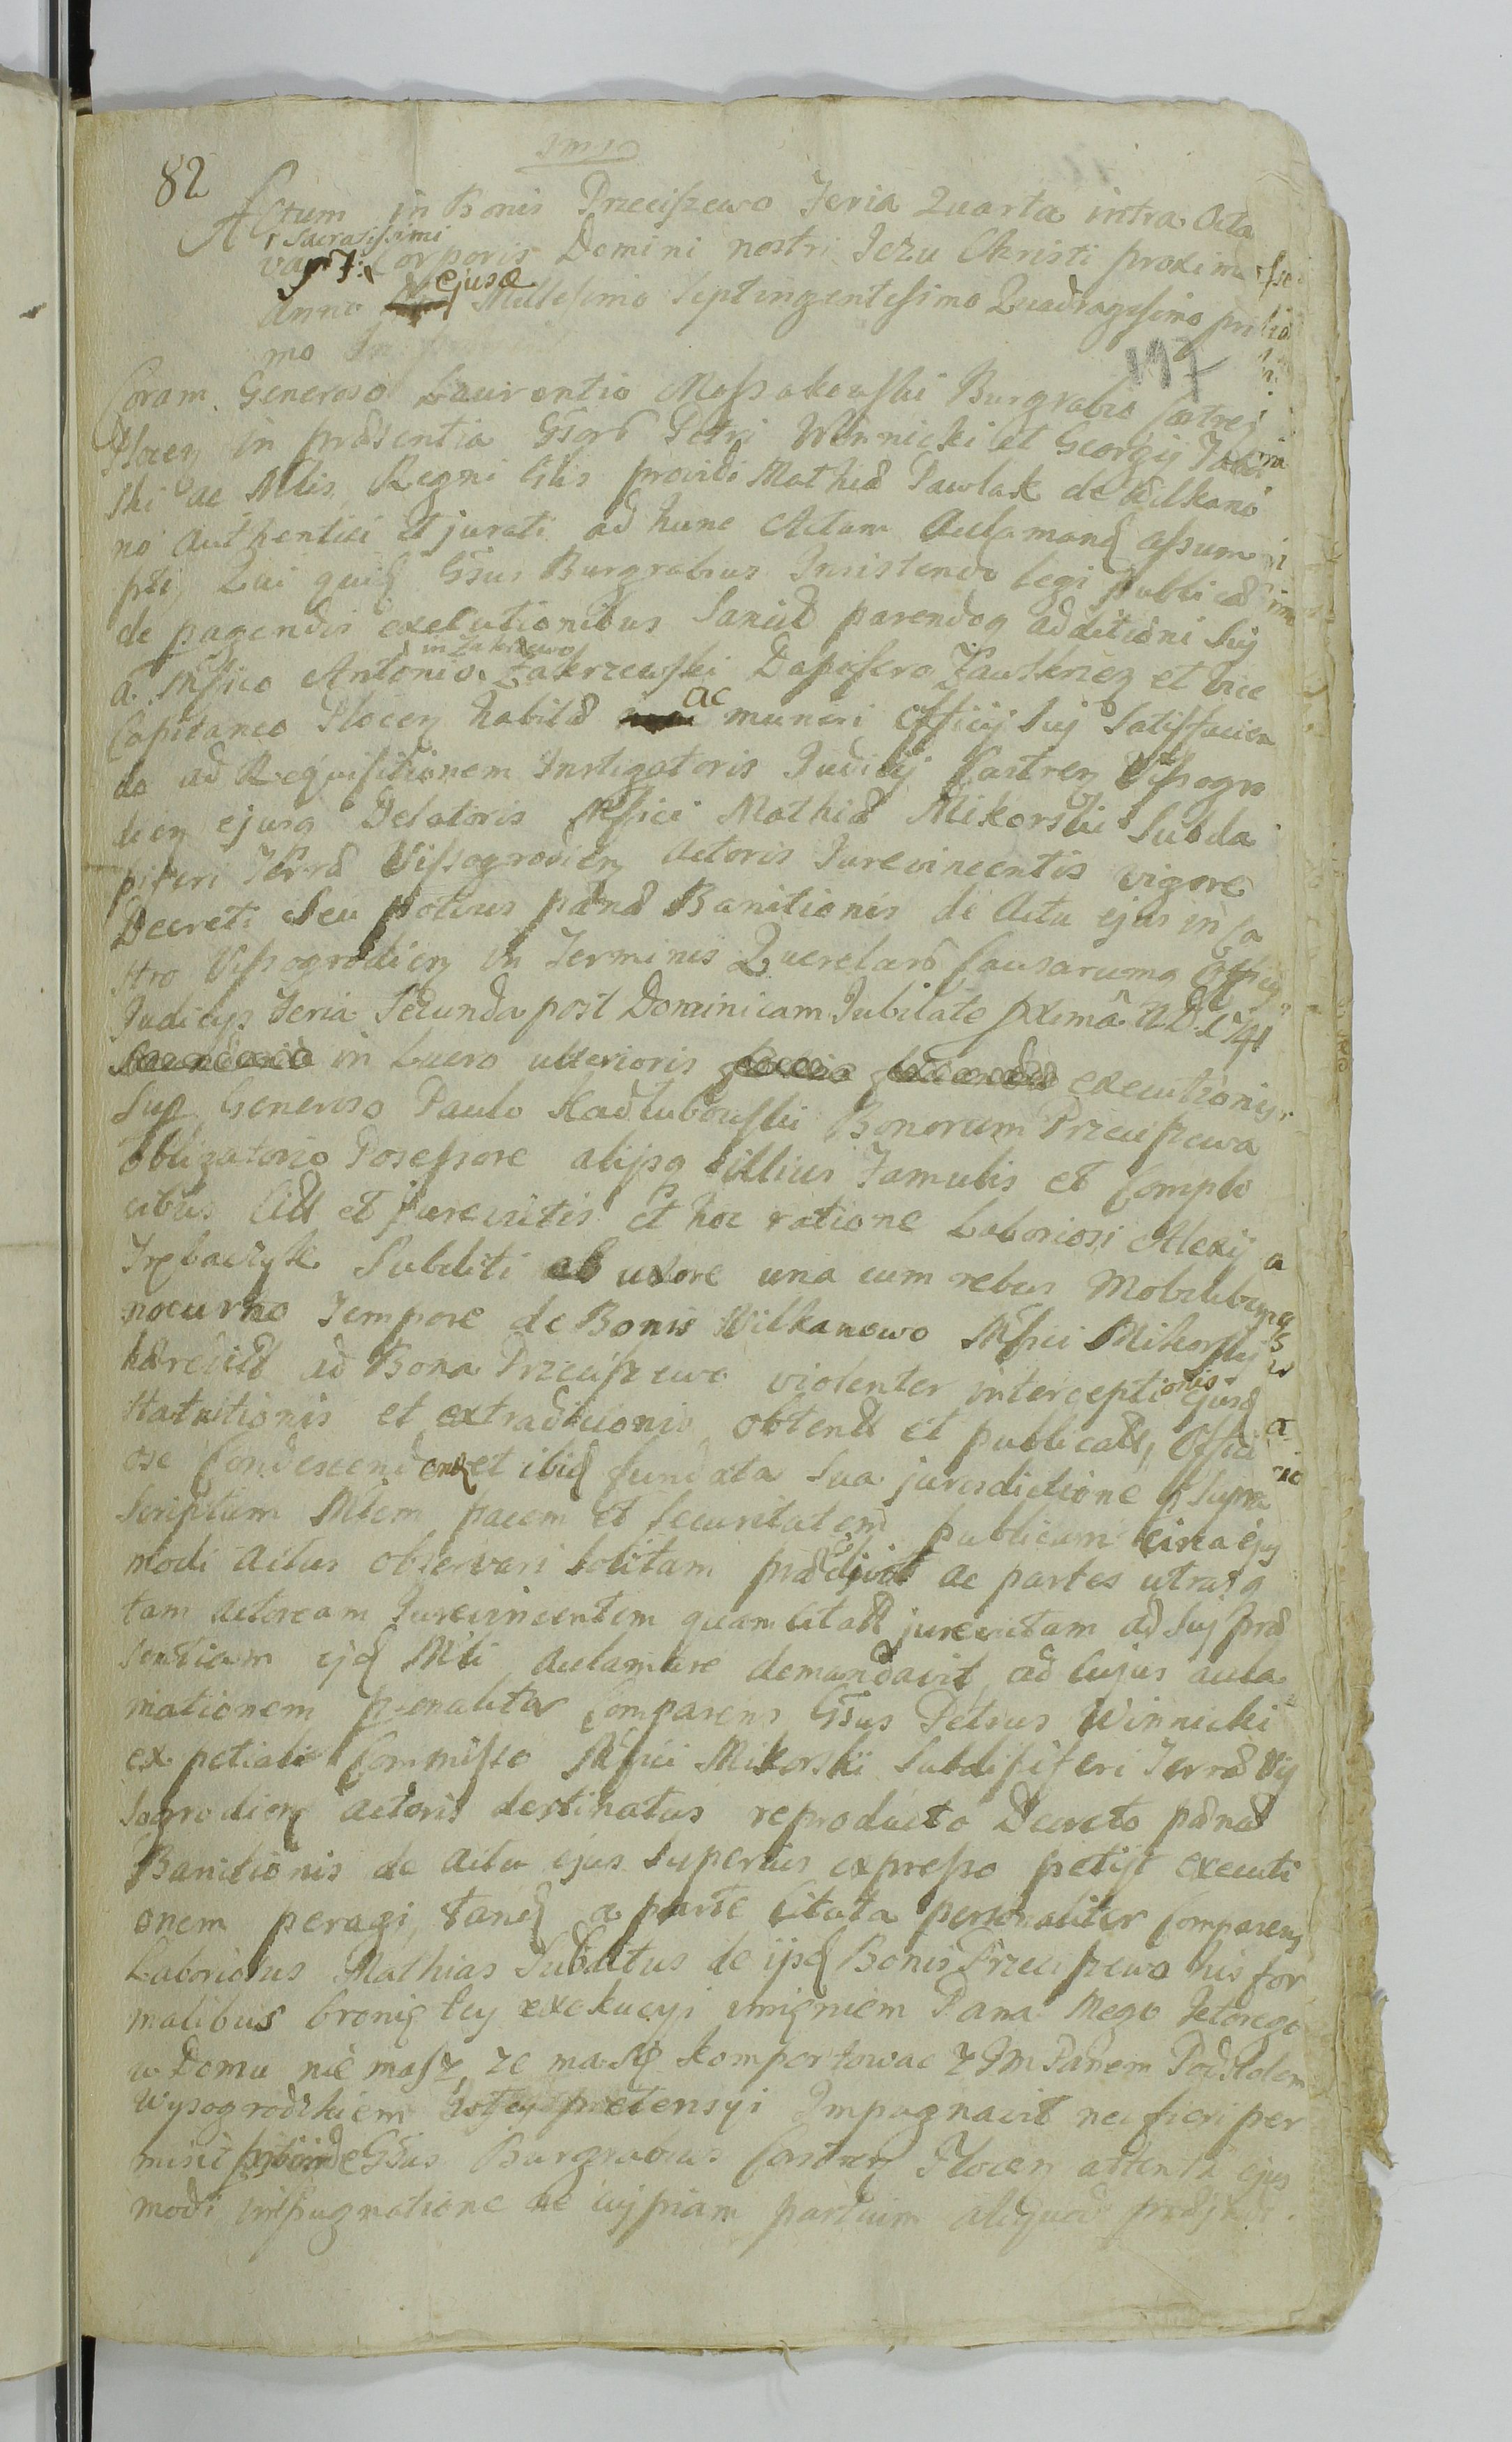 82
Actum in Bonis Przeciszewo Feria Quarta intra Octa
Sacratissimi
vas Corporis Domini nostri Jezu Christi proxima
ejusq
Anno Millesimo Septingentesimo Quadragesimo pri
mo
197
Coram Generoso Laurentio Mossakowski Burgrabio Castren
Plocen in præsentia Gsorũ Petri Winnicki et Georgij
ski ac Mtlis Regni Glis providi Mathiæ Pawlak de Wilkano
no authentici et jurati ad hunc Actum acclamand assum
pti, Qui quid Gsus Burgrabius Insistendo legi publicæ
de pagendis executionibus Sancitæ parendoq additioni Suj
in Zakrzewo
a Mfico Antonio Zakrzewski Dapifero Zawskrzen et Vice
Capitaneo Plocen habitæ ac muneri Officij Suj Satisfacien
do ad Requisitionem Instigatoris Judicij Castren Vissogro
dien ejusq Delatoris Mfici Mathiæ Mikorski Subda
piferi Terræ Vissogrodien Actoris Jurevincentis vigore
Decreti Seu potius pænæ Banitionis de Actu ejus in Ca
stro Vissogrodien in Terminis Querelarũ Causarumq Officij
Judicijs Feria Secunda post Dominicam Jubilate pximã A.D. 1741
in Lucro ulterioris executionis
Sup Generoso Paulo Kadłubowski Bonorum Przeciszewa
obligatorio Possessore alijsq illius Famulis et Compli
cibus Citt et jurevictis et hoc ratione Laboriosi Alexij
Trębaczyk Subditi ab uxore una cum rebus Mobilibusq
nocurno Tempore de Bonis Wilkanowo Mfici Mikorski
hæreditæ ad Bona Przeciszewo violenter interceptionis ejusd
statuitionis et extraditionis obtent et publicatt, Offici
ose Condescendend et ibid fundata Sua jurisdictione p Supra
Scriptum Mtlem pacem et Securitatem publicam circa ejus
modi Actus observari solitam præ ac partes utrasq
tam Actoream Jurevincentem quam Citatt jurevictam ad Suj præ
sentiam ijd Mtli aclamare demandavit, ad Cujus acla
mationem psonaliter Comparens Gsus Petrus Winnicki
ex petiali Commisso Mfici Mikorski Subdapiferi Terræ Vis
sogrodien actoris destinatus reproducto Decreto pænæ
Banitionis de Actu ejus Superius expresso petijt executi
onem peragi, tand a parte Citata personaliter Comparens
Laboriosus Mathias Subditus de ijsd Bonis Przeciszewo his for
malibus bronię tey exekucyi imięniem Pana Mego ktorego
w Domu nie masz, ze ma się komportowac z JM Panem Podstolem
Wysogrodzkiem zotey pretensyi Impugnavit nec fieri per
misit proinde Gsus Burgrabius Castren Plocen attenta ejus
modi impugnatione ne cujpiam partium aliquod præjudi